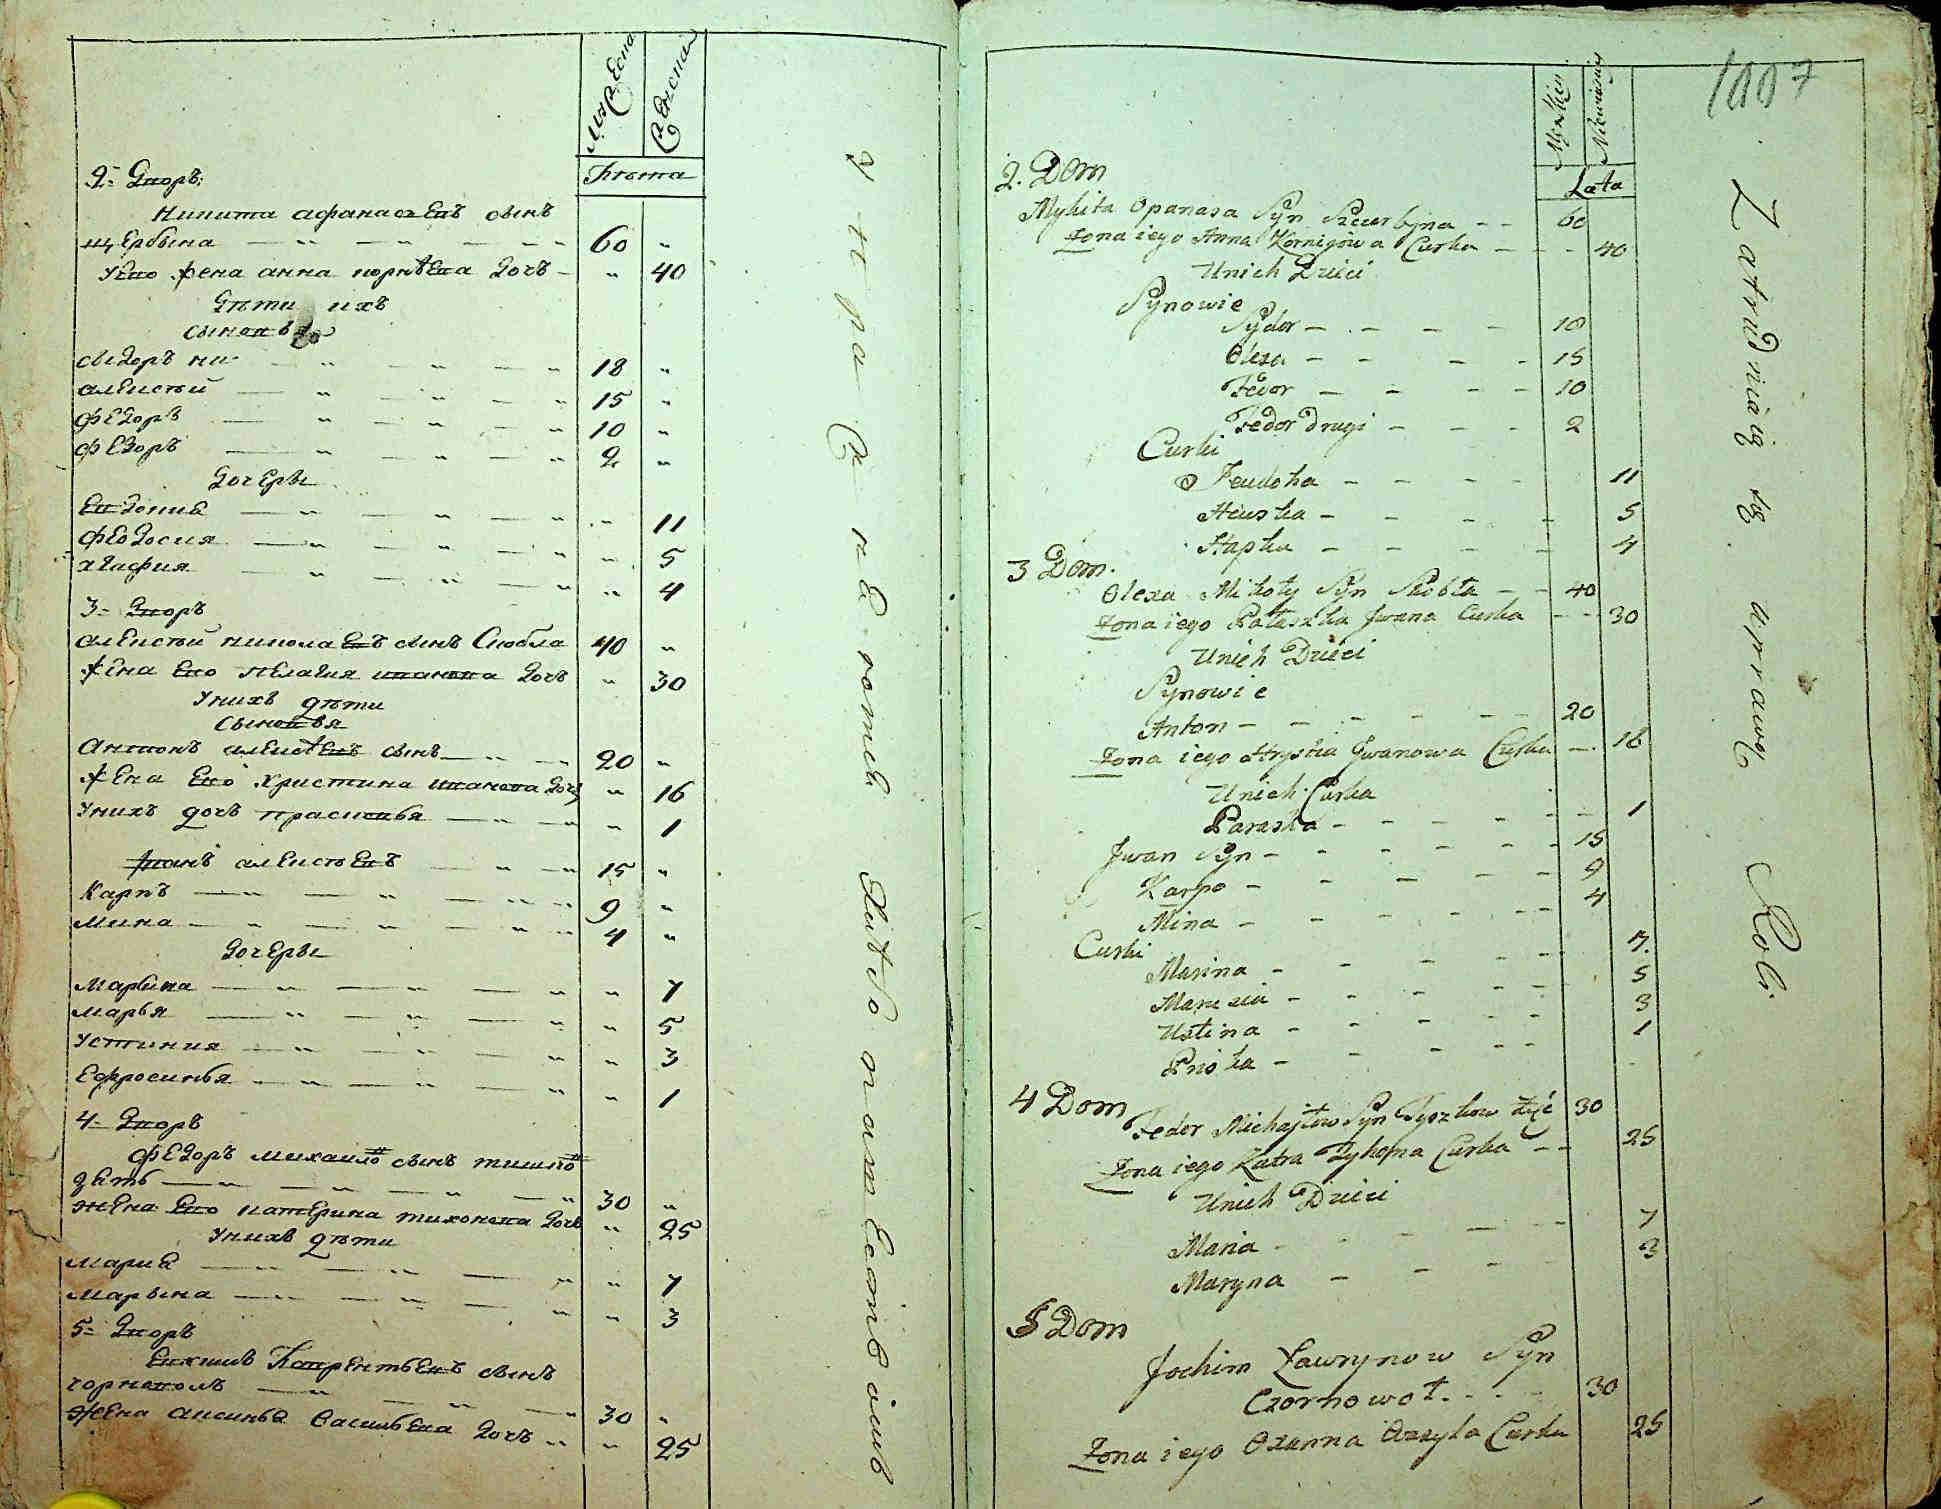 мужеска
женска
Лѣта
2- Дворъ:
Никита афанасьевъ сынъ
щербина 60
Уево жена анна корнѣева дочь 40
Дѣти ихъ
сыновья
сидоръ 18
алексѣй 15
федоръ 10
федоръ 2
дочеры
евдокия 11
феодосия 5
агафия 4
3- Дворъ
алексѣй николаевъ сынъ Скобла 40
жена ево пелагия иванова дочь 30
Унихъ дѣти
сыновья
антонъ алексѣевъ сынъ 20
жена ево христина иванова дочь 16
Унихъ дочь прасковья 1
иванъ алексѣевъ 15
Карпъ 9
мина 4
дочеры
марина 7
марья 5
устиния 3
ефросинья 1
4- Дворъ
федоръ михаиловъ сынъ тишковъ
зять 30
жена ево катерина тихонова дочь 25
Унихъ дѣти
мария 7
марина 3
5- Дворъ
Лаврентьевъ сынъ
чорноволъ 30
жена аксинья васильева дочь 25
1007
Męzkiey
Niewiasciey
Lata
2. Dom
Mykita Opanasa Syn Szczerbyna - - 60
Zona iego Anna Kornijowa Curka - - - 40
Unich Dzieci
Synowie
Sydor - - - - 18
Olexa - - - - 15
Fedor - - - - 10
Fedor drugi - - - 2
Curki
Feudoha - - - - 11
- - - - 5
Hapka - - - - 4
3 Dom.
Olexa Mikoły Syn Skobła - - 40
Zona iego Pałaszka Jwana Curka - - 30
Unich Dzieci
Synowie
Anton - - - - - - 20
Zona iego Hrystia Jwanowa Curka - - 16
Unich Curka
Paraska - - - - - - 1
Jwan Syn - - - - - - 15
Karpo - - - - - 9
Mina - - - - - - 4
Curki
Marina - - - - - 7.
Marusia - - - - - 5
Ustina - - - - - 3
Priska - - - - - 1
4 Dom
Fedor Michajłow Syn Tyszkow Zięć 30
Zona iego Katra Tyhona Curka - - 25
Unich Dzieci
Maria - - - - - 7
Maryna - - - - 3
5 Dom
Jochim Ławrynow Syn
Czornowoł. - - - 30
Zona iego Oxanna Wasyla Curka 25
Zatrudniaią się uprawą Roli.